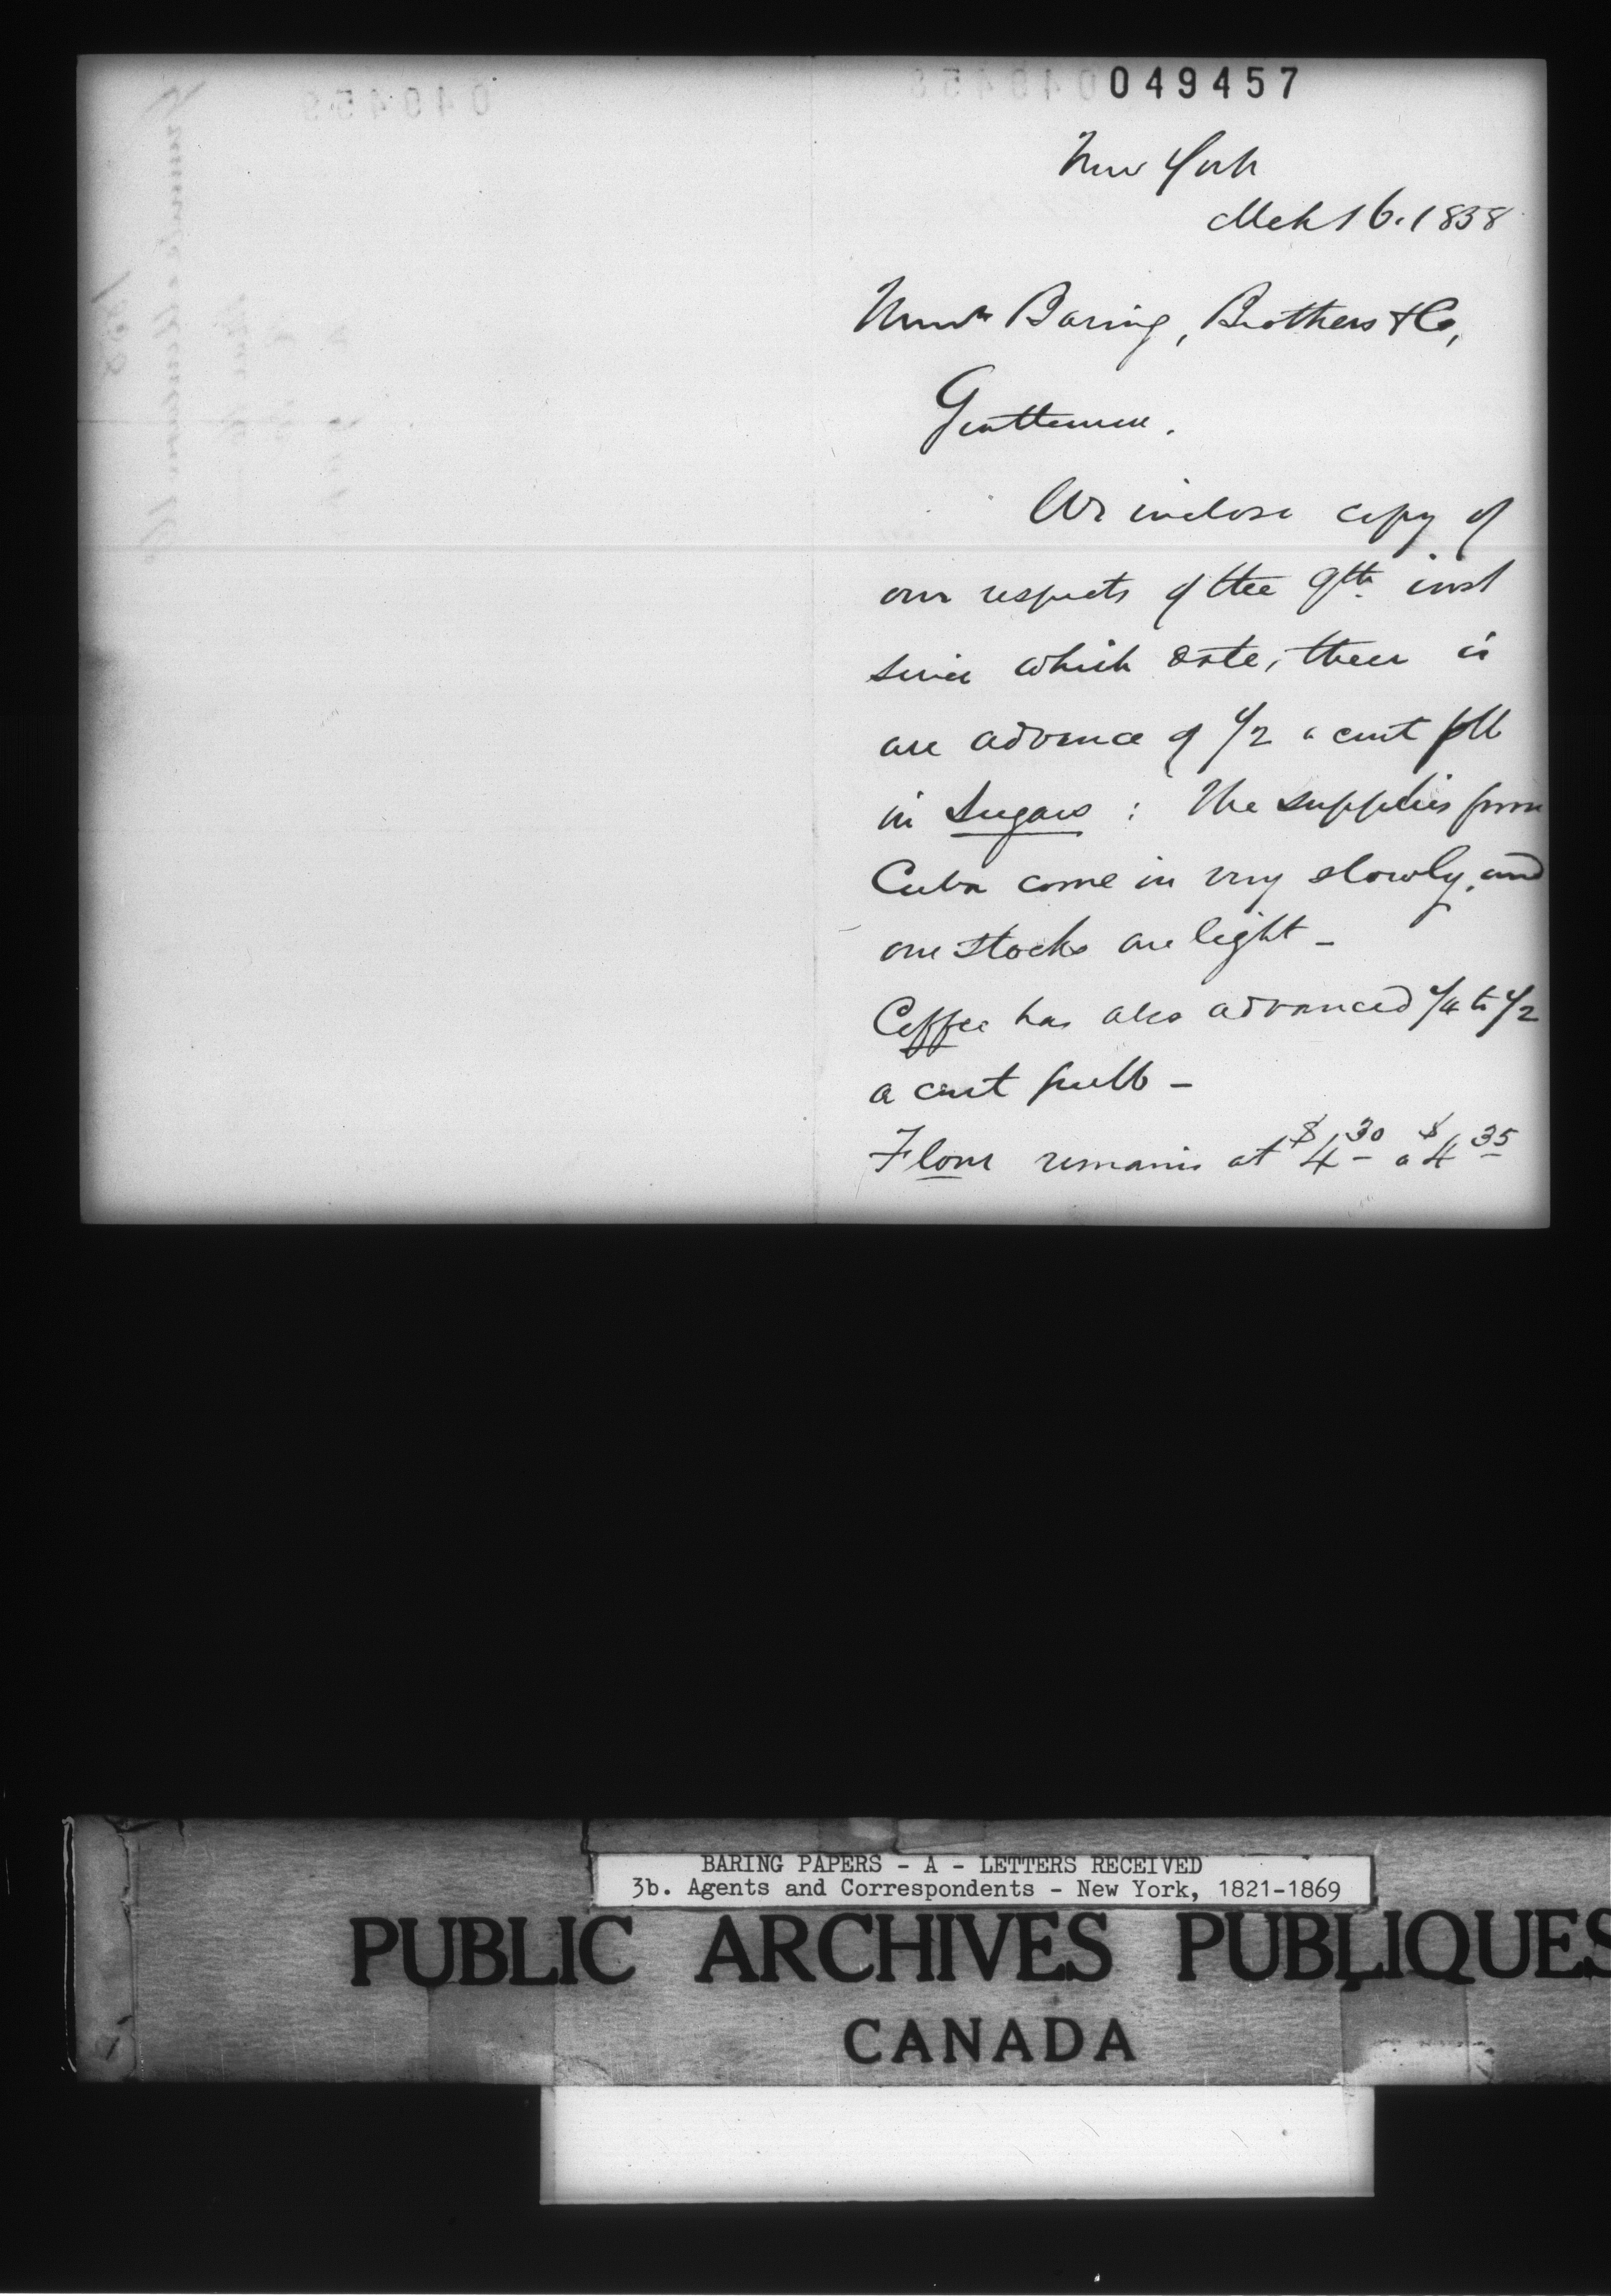 049457
New York
Mch 16. 1858
Messrs Baring, Brothers & Co,
Gentlemen.
We inclose copy of
our respects of the 9th inst
since which date, there is
an advance of 1/2 a cent plb
in Sugars : The supplies from
Cuba come in very slowly, and
our stocks are light -
Coffee has also advanced 1/4 to 1/2
a cent pr lb -
Flour remains at $4 30 a $4 35
BARING PAPERS - A - LETTERS RECEIVED
3b. Agents and Correspondents - New York, 1821-1869
PUBLIC ARCHIVES PUBLIQUES
CANADA